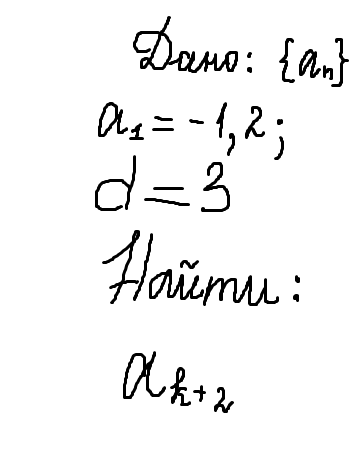 Дано: {aₙ}
a₁ = -1,2;
d = 3
Найти:
aₖ₊₂